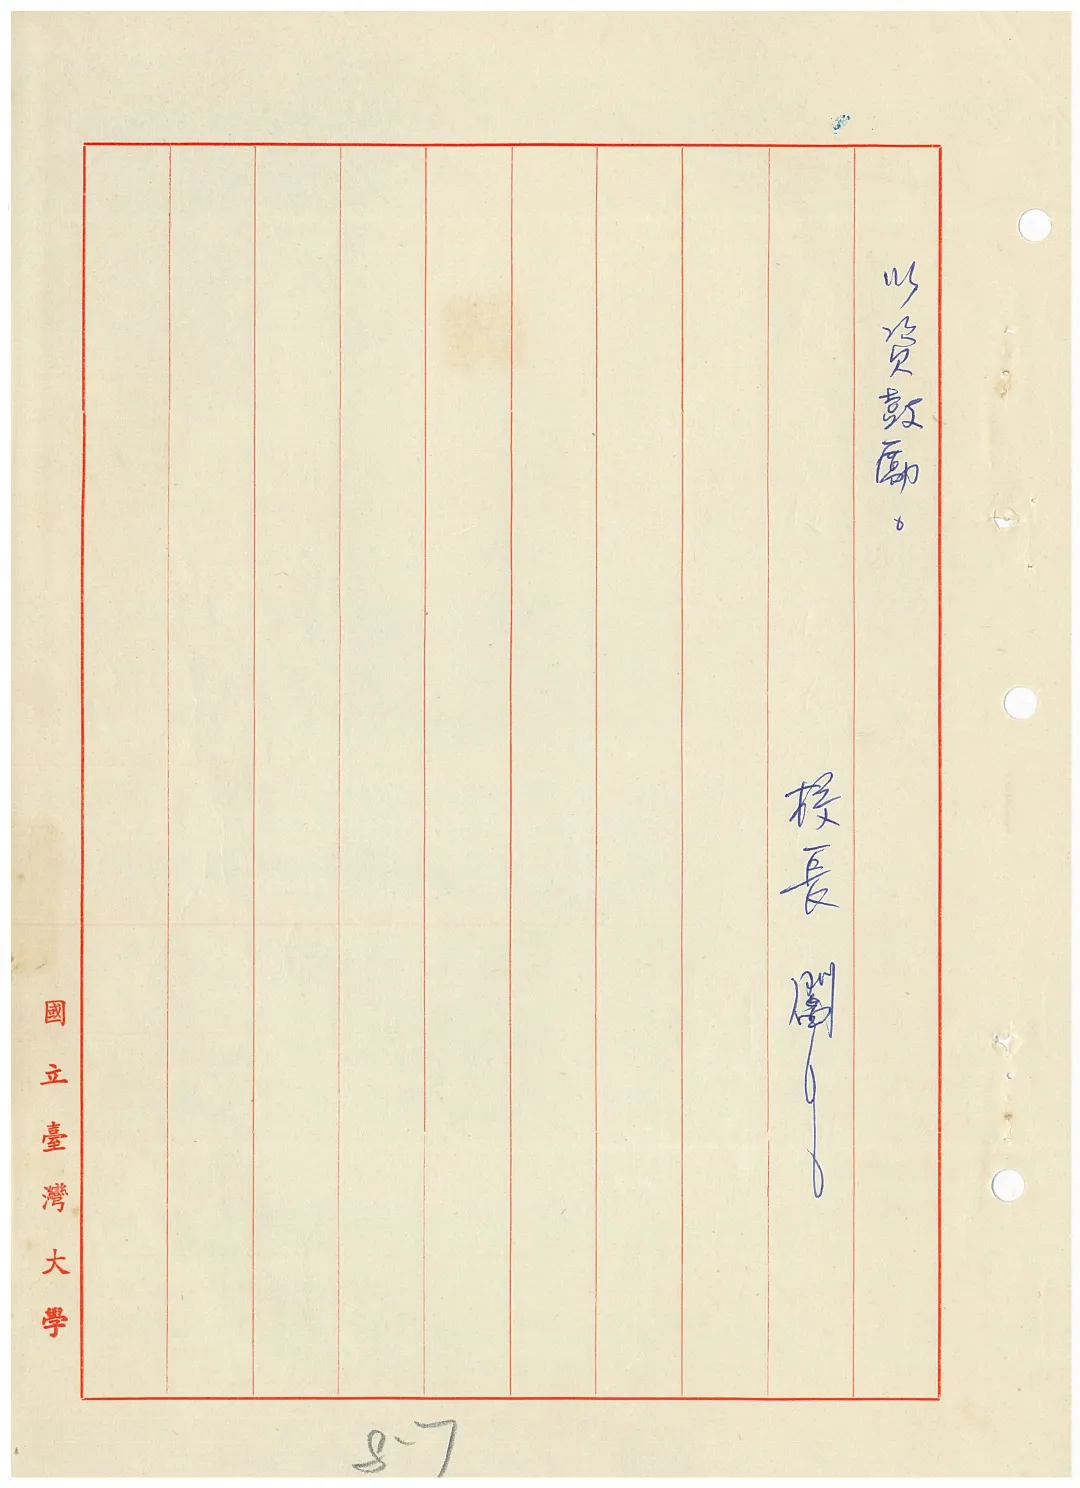 以資鼓勵。
校長 閻
國立臺灣大學
8-7